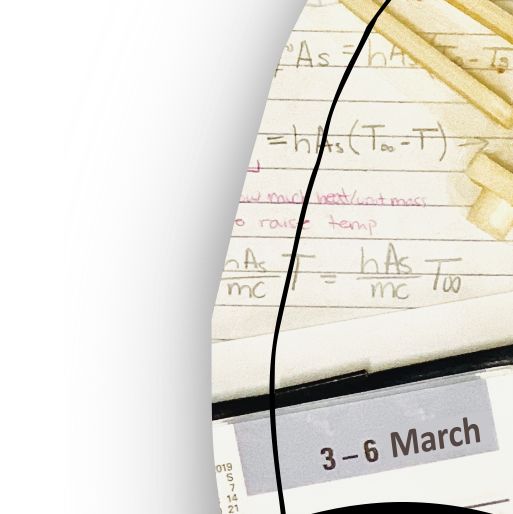 As = hAs
= hAs(T∞-T) →
much heat/unit mass
raise temp
hAs/mc T = hAs/mc T∞
3 – 6 March
019
S
7
14
21